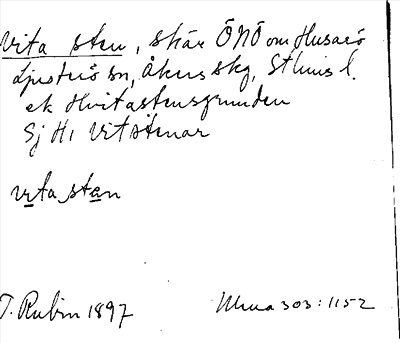 Vita sten, skär ÖNÖ om Husarö
Ljusterö sn, Åkers skg, Sthlms l.
ek Hvitastensgrunden
Sj H, Vitstenar
vita stan
T. Rubin 1897 303:1152